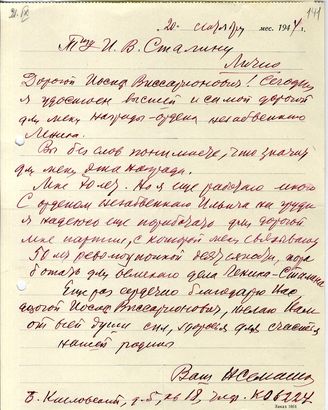 141
20 сентября мес. 1944 г.
Т-щу И. В. Сталину
Лично
Дорогой Иосиф Виссарионович! Сегодня
я удостоен высшей и самой дорогой
для меня награды – ордена незабвенного
Ленина.
Вы без слов понимаете, что значит
для меня эта награда.
Мне 70 лет. Но я еще работаю много
С орденом незабвенного Ильича на груди
я надеюсь еще поработать для дорогой
мне партии, с которой меня связывают
50 лет революционной деятельности, пора
ботать для великого дела Ленина – Сталина
Еще раз сердечно благодарю Вас
дорогой Иосиф Виссарионович, желаю Вам
от всей души сил, здоровья для счастья
нашей родины
Ваш НСемашко
Б. Кисловский, д. 5, кв 18, К06224